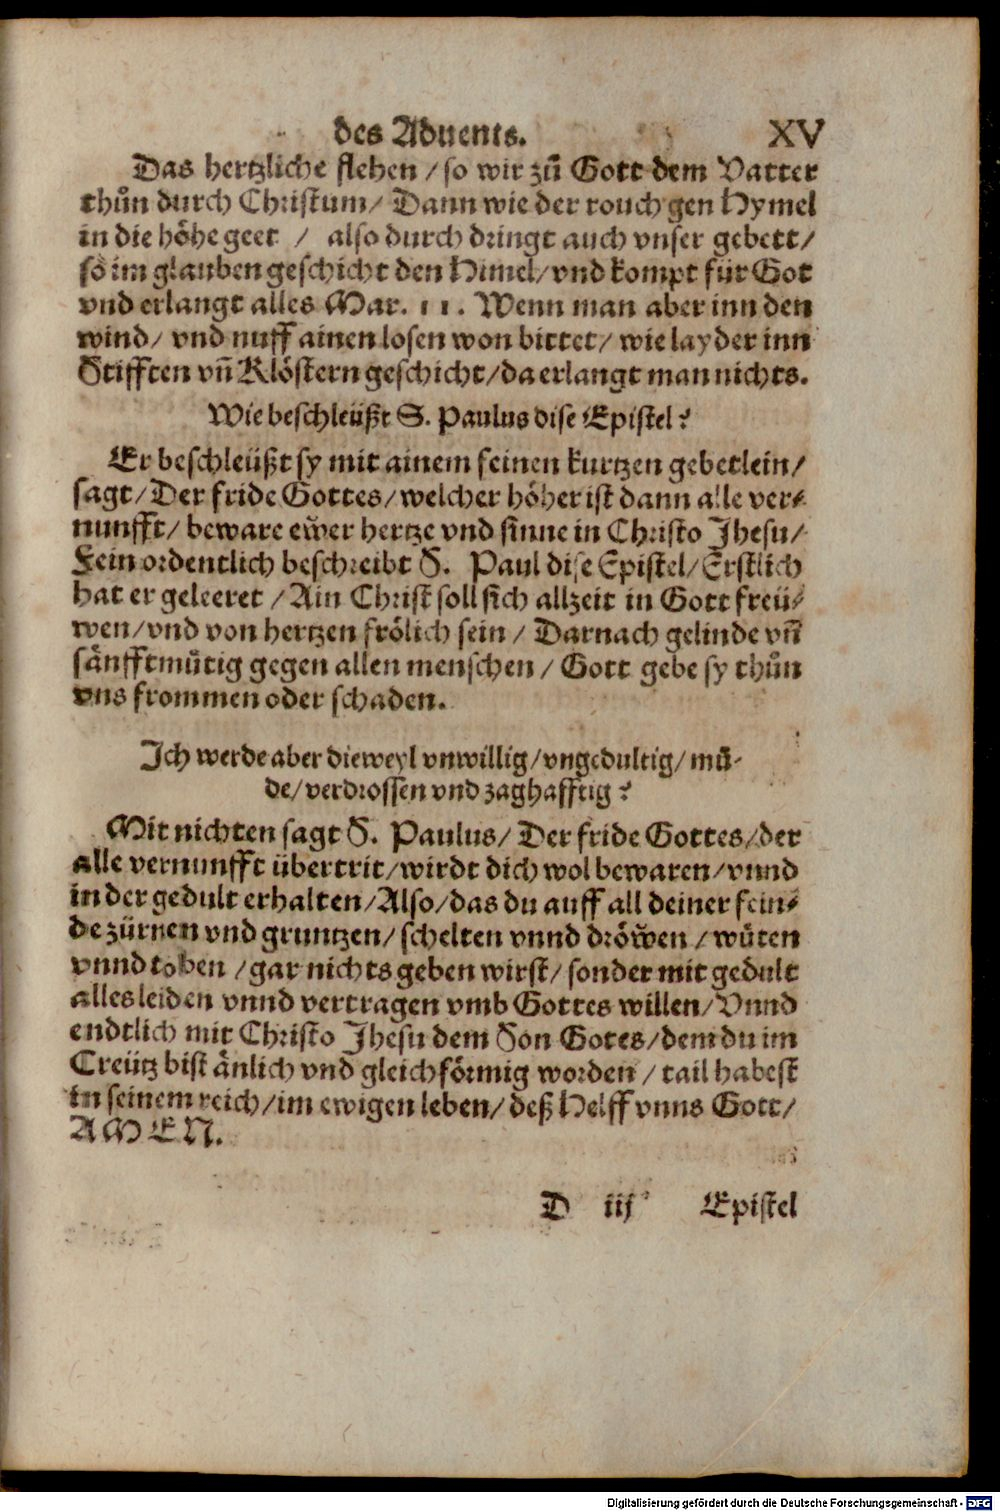 des Aduents. XV
Das hertzliche flehen / so wir zů Gott dem Vatter
thůn durch Christum / Dann wie der rouch gen Hymel
in die höhe geet / also durch dringt auch vnser gebett /
so im glauben geschicht den Himel / vnd kompt für Got
vnd erlangt alles Mar. 11. Wenn man aber inn den
wind / vnd nuff ainen losen won bittet / wie layder inn
Stifften vñ Klöstern geschicht / da erlangt man nichts.
Wie beschleüßt S. Paulus dise Epistel?
Er beschleüßt sy mit ainem feinen kurtzen gebetlein /
sagt / Der fride Gottes / welcher höher ist dann alle ver⸗
nunfft / beware eẅer hertze vnd sinne in Christo Jhesu /
Fein ordentlich beschreibt S. Paul dise Epistel / Erstlich
hat er geleeret / Ain Christ soll sich allzeit in Gott freü⸗
wen / vnd von hertzen frölich sein / Darnach gelinde vñ
sänfftmůtig gegen allen menschen / Gott gebe sy thůn
vns frommen oder schaden.
Ich werde aber dieweyl vnwillig / vngedultig / mů⸗
de / verdrossen vnd zaghafftig?
Mit nichten sagt S. Paulus / Der fride Gottes / der
alle vernunfft übertrit / wirdt dich wol bewaren / vnnd
in der gedult erhalten / Also / das du auff all deiner fein⸗
de zürnen vnd gruntzen / schelten vnnd dröẅen / wůten
vnnd toben / gar nichts geben wirst / sonder mit gedult
alles leiden vnnd vertragen vmb Gottes willen / Vnnd
endtlich mit Christo Jhesu dem Son Gotes / dem du im
Creütz bist änlich vnd gleichförmig worden / tail habest
in seinem reich / im ewigen leben / deß Helff vnns Gott /
AMEN.
D iij Epistel
Digitalisierung gefördert durch die Deutsche Forschungsgemeinschaft - DFG